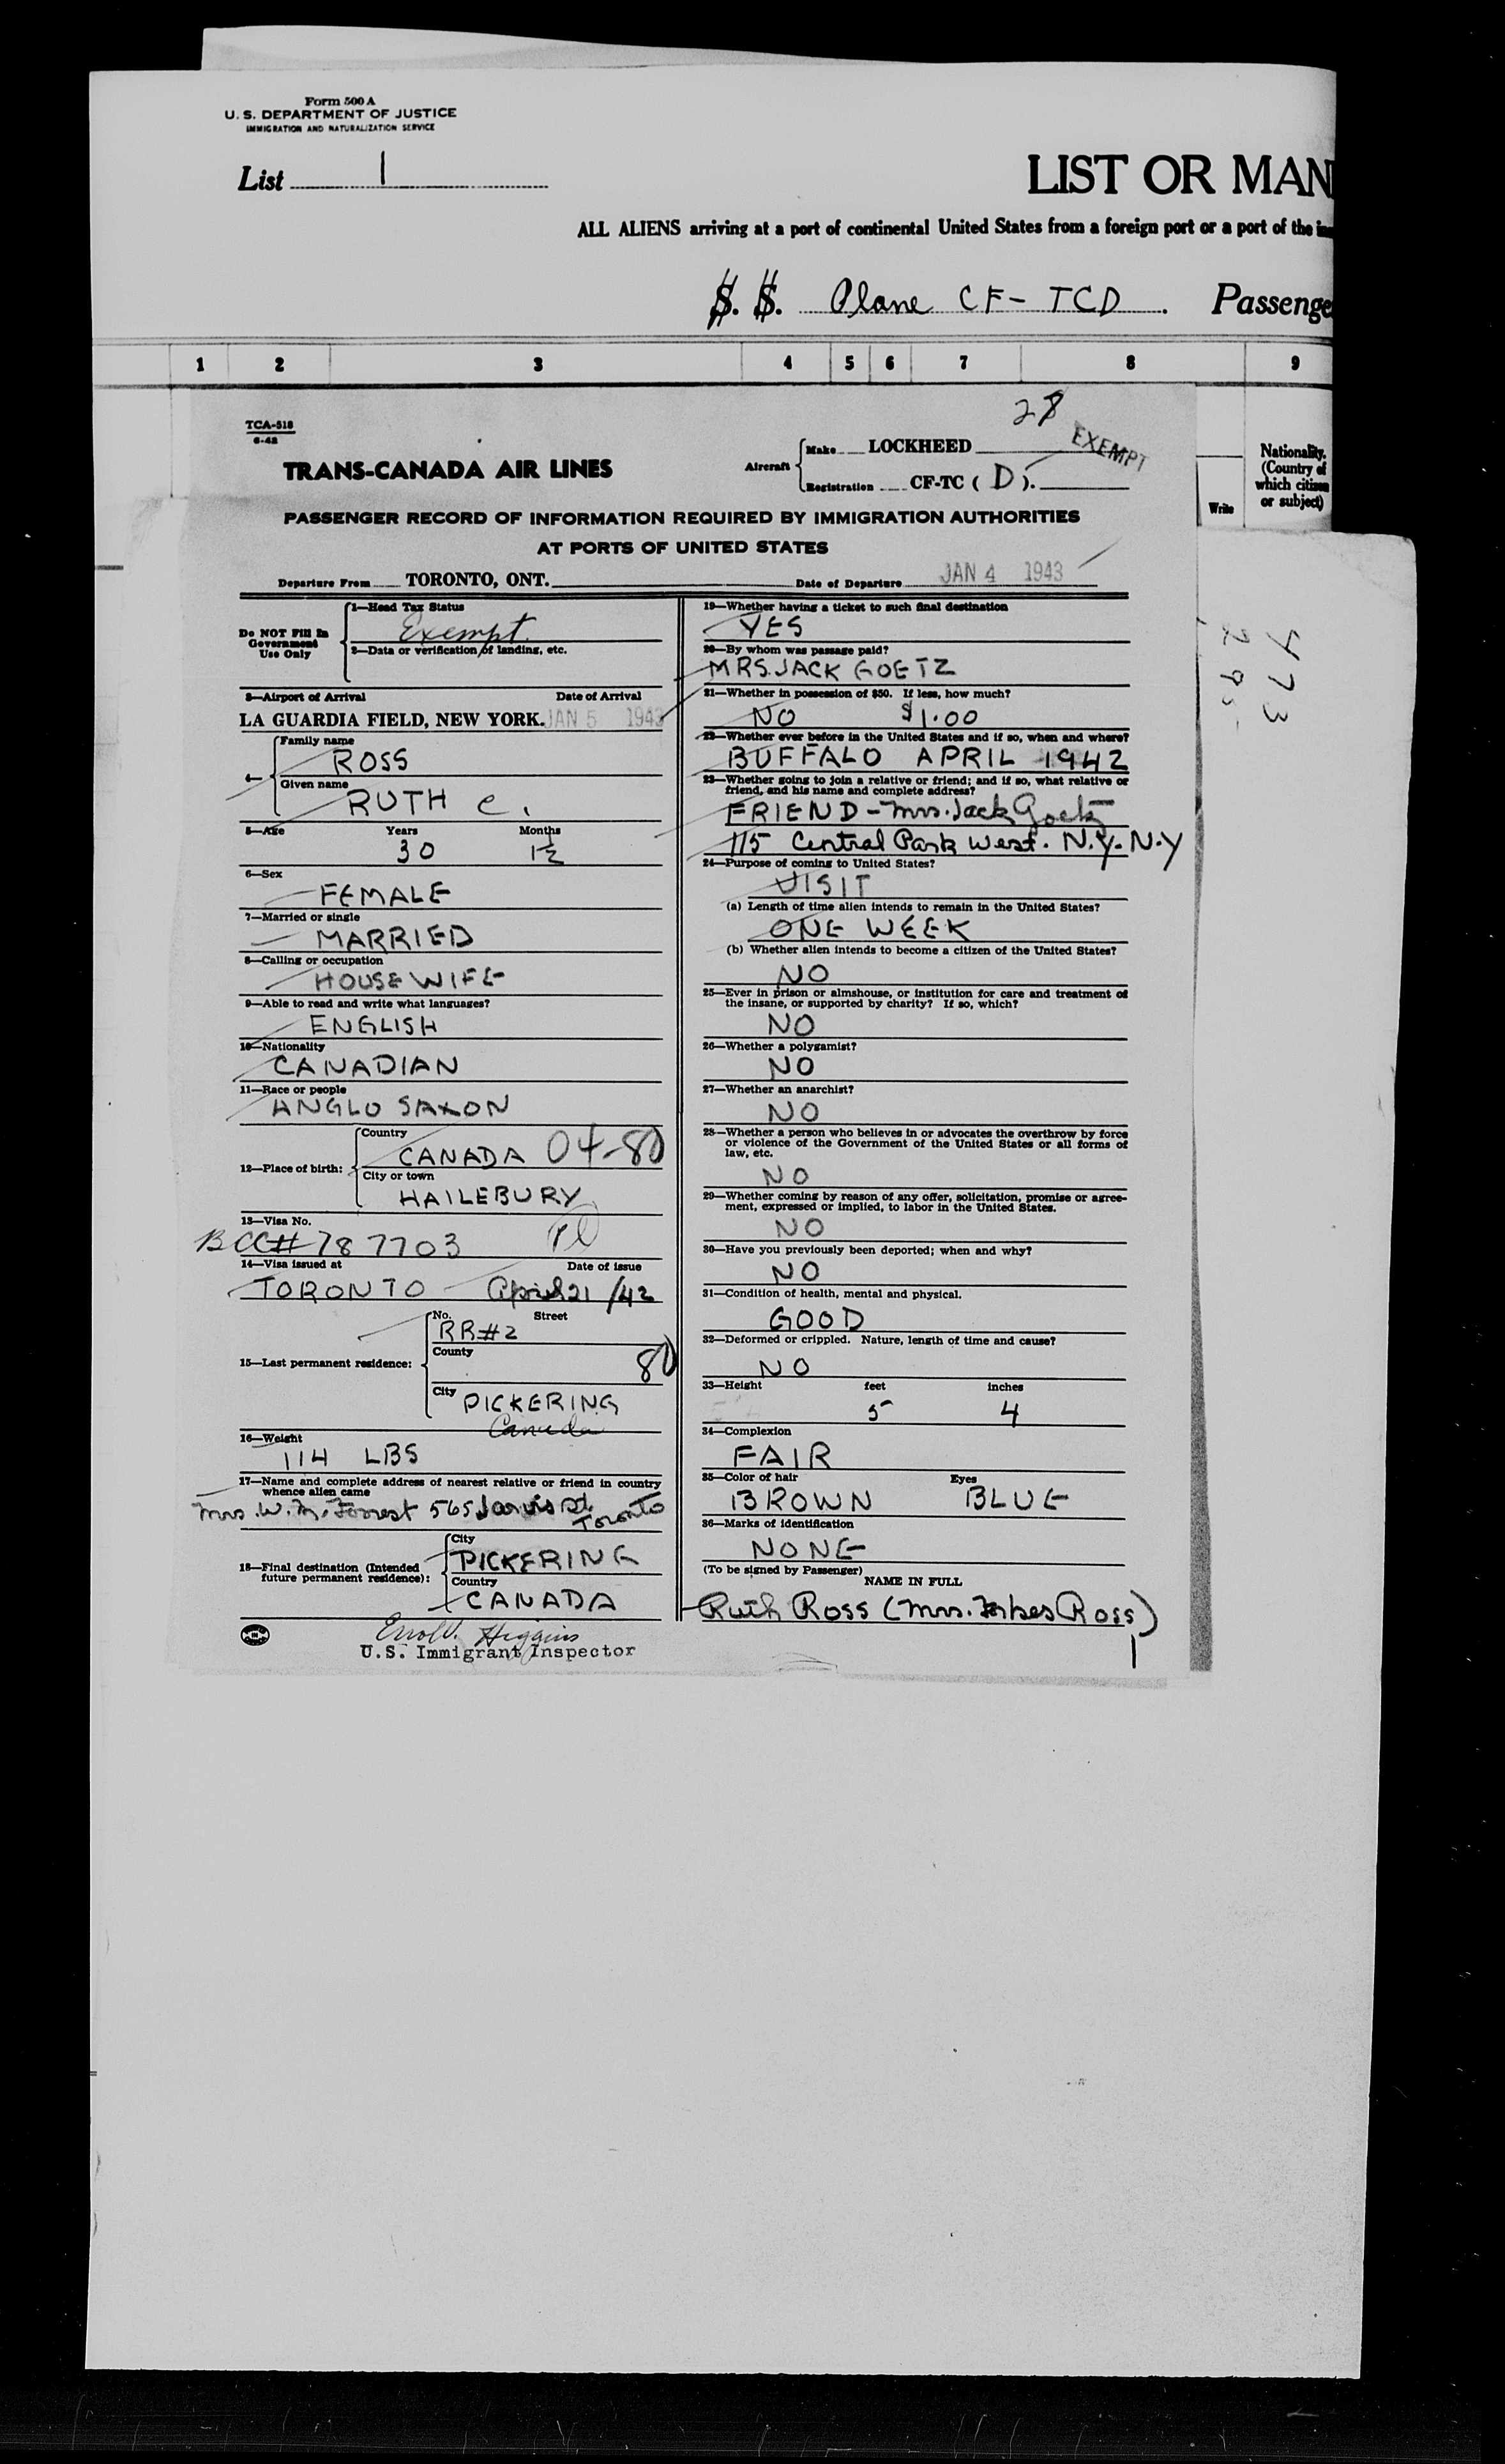 Form 500 A
U. S. DEPARTMENT OF JUSTICE
IMMIGRATION AND NATURALIZATION SERVICE
List 1
LIST OR MAN
ALL ALIENS arriving at a port of continental United States from a foreign port or a port of the
S. S. Plane CF-TCD. Passenge
1 2 3 4 5 6 7 8 9
28
EXEMPT
TCA-518
6-42
TRANS-CANADA AIR LINES
Aircraft
Make LOCKHEED
Registration CF-TC ( D ).
Nationality.
(Country of
which citizen
or subject)
Write
PASSENGER RECORD OF INFORMATION REQUIRED BY IMMIGRATION AUTHORITIES
AT PORTS OF UNITED STATES
Departure From TORONTO, ONT. Date of Departure JAN 4 1943
Do NOT Fill In
Government
Use Only
1—Head Tax Status
Exempt.
2—Data or verification of landing, etc.
3—Airport of Arrival Date of Arrival
LA GUARDIA FIELD, NEW YORK. JAN 5 1943
4—
Family name
ROSS
Given name
RUTH C.
5—Age Years Months
30 1½
6—Sex
FEMALE
7—Married or single
MARRIED
8—Calling or occupation
HOUSEWIFE
9—Able to read and write what languages?
ENGLISH
10—Nationality
CANADIAN
11—Race or people
ANGLO SAXON
12—Place of birth:
Country
CANADA 04-80
City or town
HAILEBURY
13—Visa No.
BCC# 787703
14—Visa issued at Date of issue
TORONTO April 21/42
15—Last permanent residence:
No. Street
RR#2
County
80
City PICKERING
Canada
16—Weight
114 LBS
17—Name and complete address of nearest relative or friend in country
whence alien came
Mrs. W. M. Forrest 565 Jarvis St.
Toronto
18—Final destination (Intended
future permanent residence):
City
PICKERING
Country
CANADA
Higgins
U.S. Immigrant Inspector
19—Whether having a ticket to such final destination
YES
20—By whom was passage paid?
MRS. JACK GOETZ
21—Whether in possession of $50. If less, how much?
NO $1.00
22—Whether ever before in the United States and if so, when and where?
BUFFALO APRIL 1942
23—Whether going to join a relative or friend; and if so, what relative or
friend, and his name and complete address?
FRIEND - Mrs. Jack Goetz
115 Central Park West. N.Y. N.Y
24—Purpose of coming to United States?
VISIT
(a) Length of time alien intends to remain in the United States?
ONE WEEK
(b) Whether alien intends to become a citizen of the United States?
NO
25—Ever in prison or almshouse, or institution for care and treatment of
the insane, or supported by charity? If so, which?
NO
26—Whether a polygamist?
NO
27—Whether an anarchist?
NO
28—Whether a person who believes in or advocates the overthrow by force
or violence of the Government of the United States or all forms of
law, etc.
NO
29—Whether coming by reason of any offer, solicitation, promise or agree-
ment, expressed or implied, to labor in the United States.
NO
30—Have you previously been deported; when and why?
NO
31—Condition of health, mental and physical.
GOOD
32—Deformed or crippled. Nature, length of time and cause?
NO
33—Height feet inches
5 4
34—Complexion
FAIR
35—Color of hair Eyes
BROWN BLUE
36—Marks of identification
NONE
(To be signed by Passenger)
NAME IN FULL
Ruth Ross (Mrs. Forbes Ross)
1
473